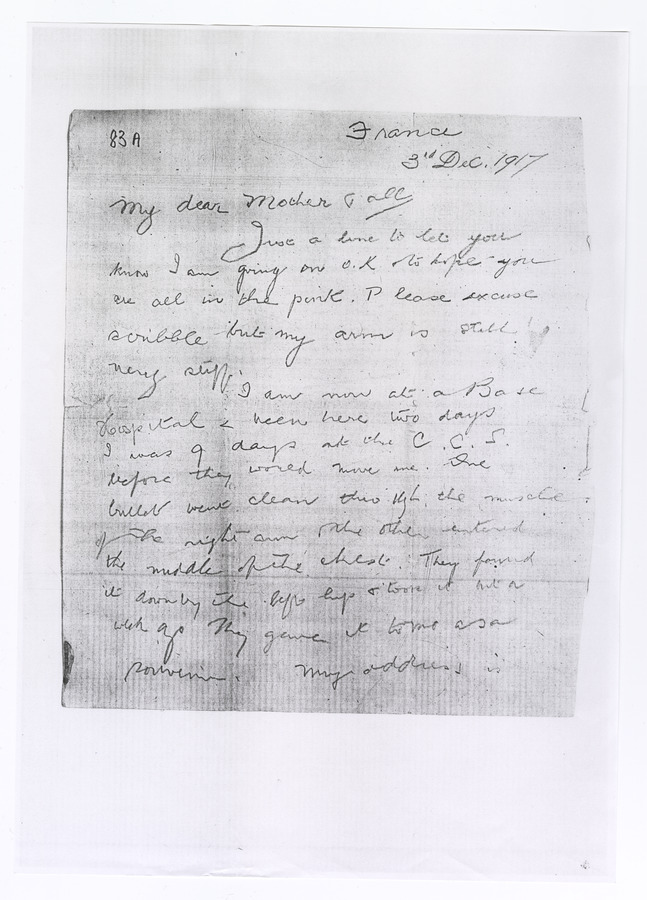 83A
France
3rd Dec. 1917
My dear Mother & all
Just a line to let you
know I am going on O.K. & to hope you
are all in the pink. Please excuse
scribble but my arm is still
very stiff.
I am now at a Base
Hospital & been here two days
I was 9 days at the C.C.S.
before they would move me. One
bullet went clean through the muscle
of the right arm & the other entered
the middle of the chest. They found
it down by the left hip & took it out a
week ago they gave it to me as a
souvenir. My address is